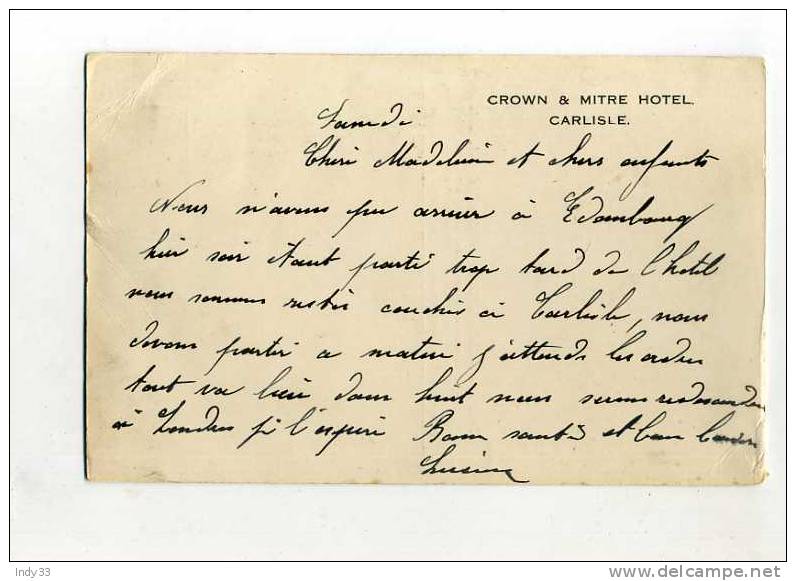 CROWN & MITRE HOTEL.
CARLISLE.
Samedi
Chère Madeleine et chers enfants
Nous n'avons pu arriver à Edambourg
hier soir étant parti trop tard de l'hotel
nous sommes restés couchés à Carlisle, nous
devons partir ce matin j'attends les ordres
tout va bien dans huit nous serons redescendu
à Londres je l'espère Bonne santé et bon
Indy33
delcampe.net